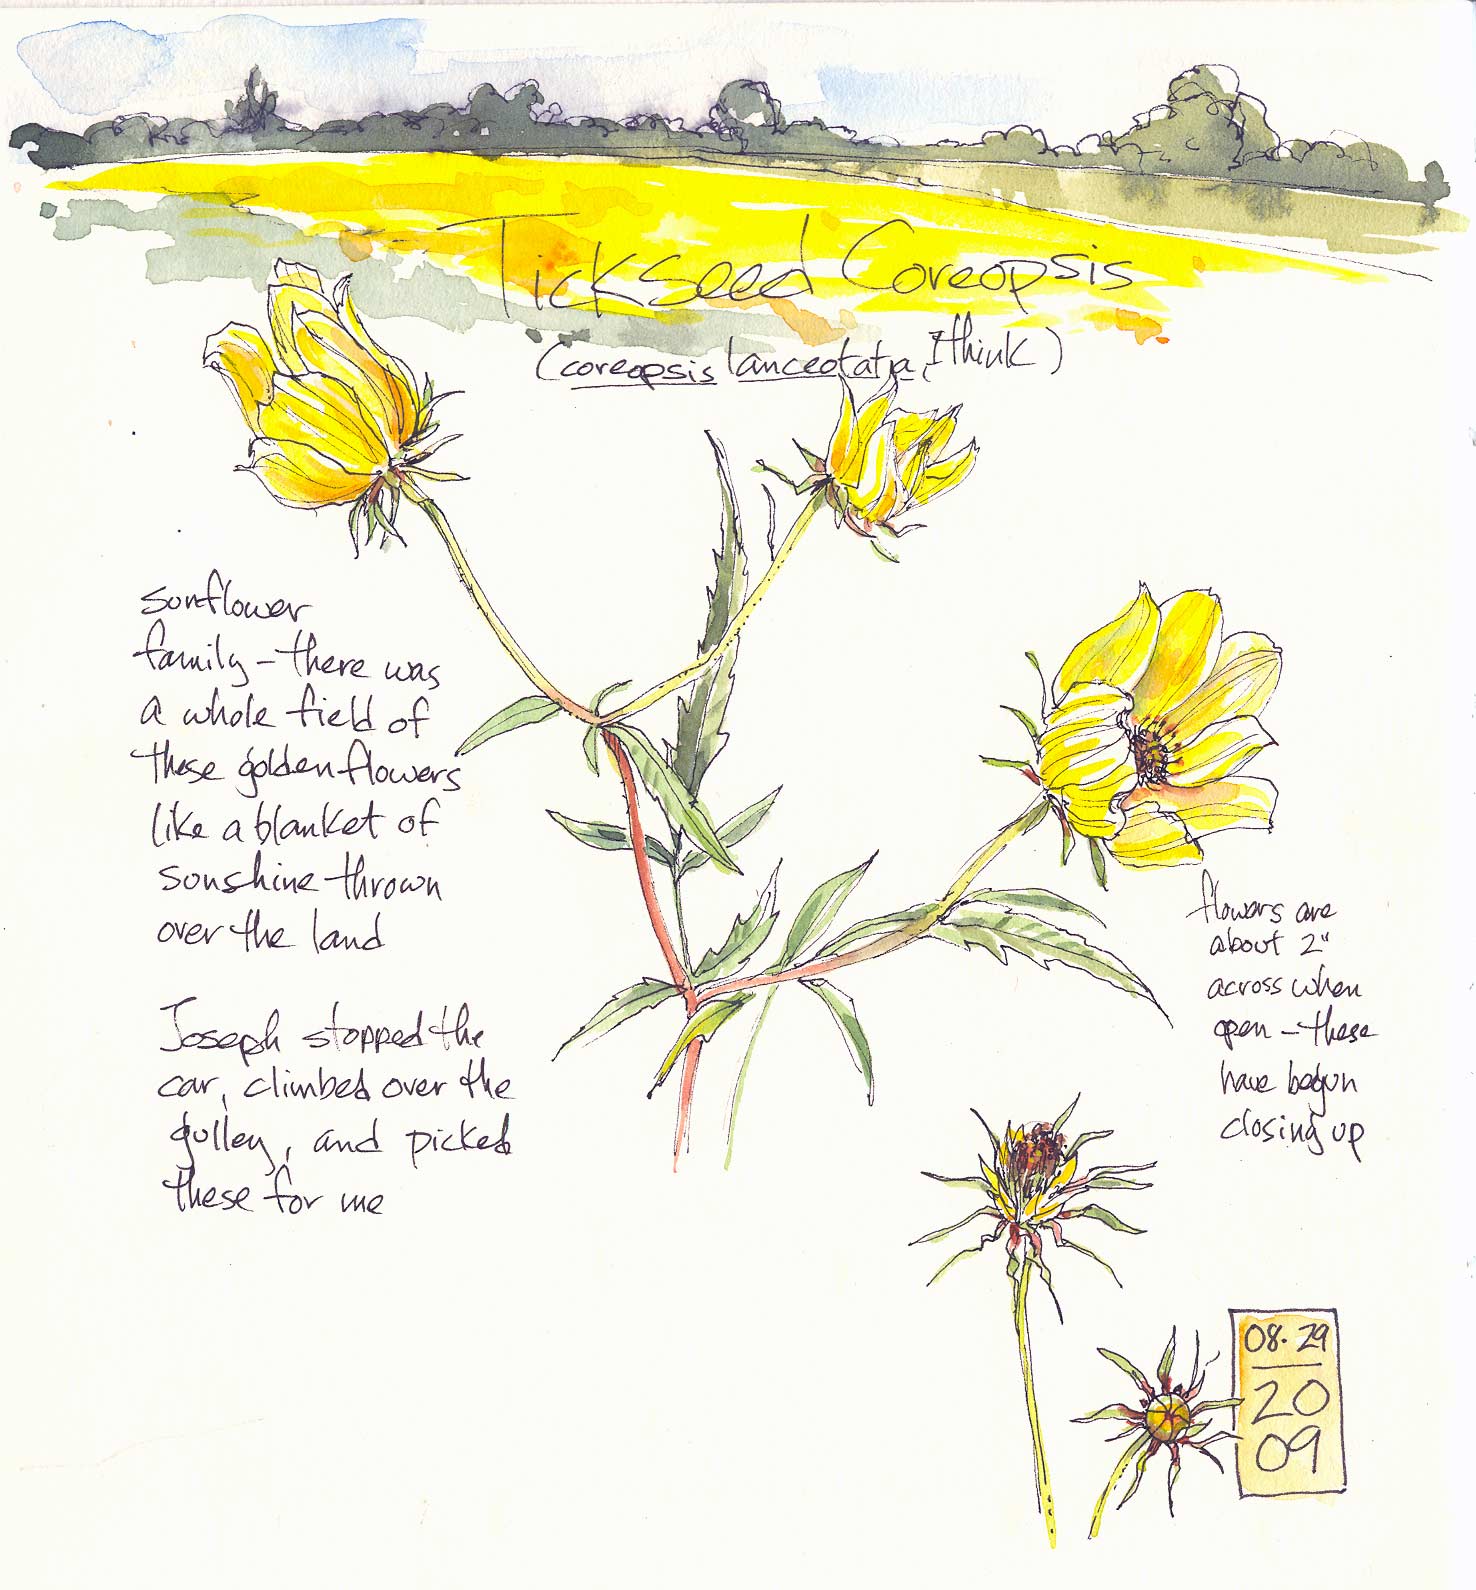 Tickseed Coreopsis
(coreopsis lanceotata, I think)
sunflower
family – there was
a whole field of
these golden flowers
like a blanket of
sunshine thrown
over the land
Joseph stopped the
car, climbed over the
gulley, and picked
these for me
flowers are
about 2"
across when
open – these
have begun
closing up
08.29
20
09